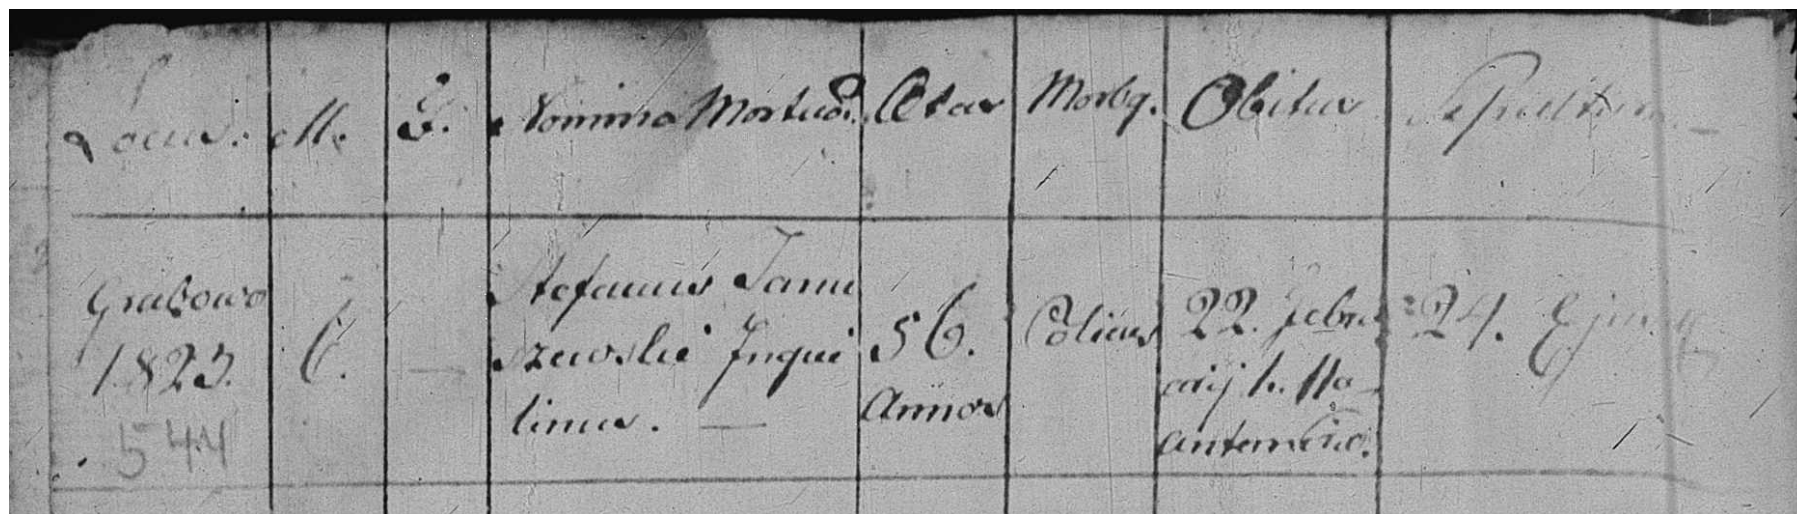 Locus. M. F. Nomina Mortuor. Ætas Morbq. Obitus Sepultura
Grabowo
1823.
544
6. —
Stefanus Janu
szewski Inqui
linus. —
56.
Annor
Colicus
22. Febru
arij h. 11a
antemerid.
24. Ejusq